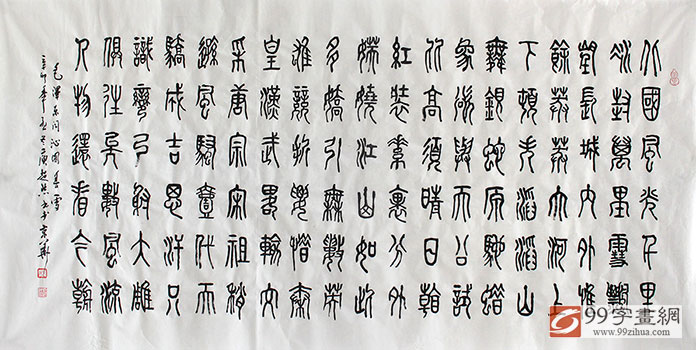 北國風光千里
冰封萬里雪飄
望長城內外惟
餘莽莽大河上
下頓失滔滔山
舞銀蛇原馳蠟
象欲與天公試
比高須晴日看
紅裝素裹分外
妖嬈江山如此
多嬌引無數英
雄競折腰惜秦
皇漢武略輸文
采唐宗宋祖稍
遜風騷一代天
驕成吉思汗只
識彎弓射大雕
俱往矣數風流
人物還看今朝
毛澤東 沁園春雪
辛卯年 書於京華
99字畫網
www.99zihua.com